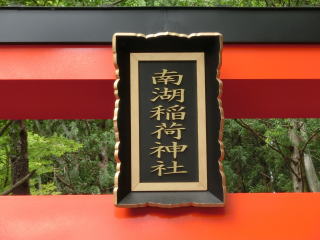 南湖稲荷神社